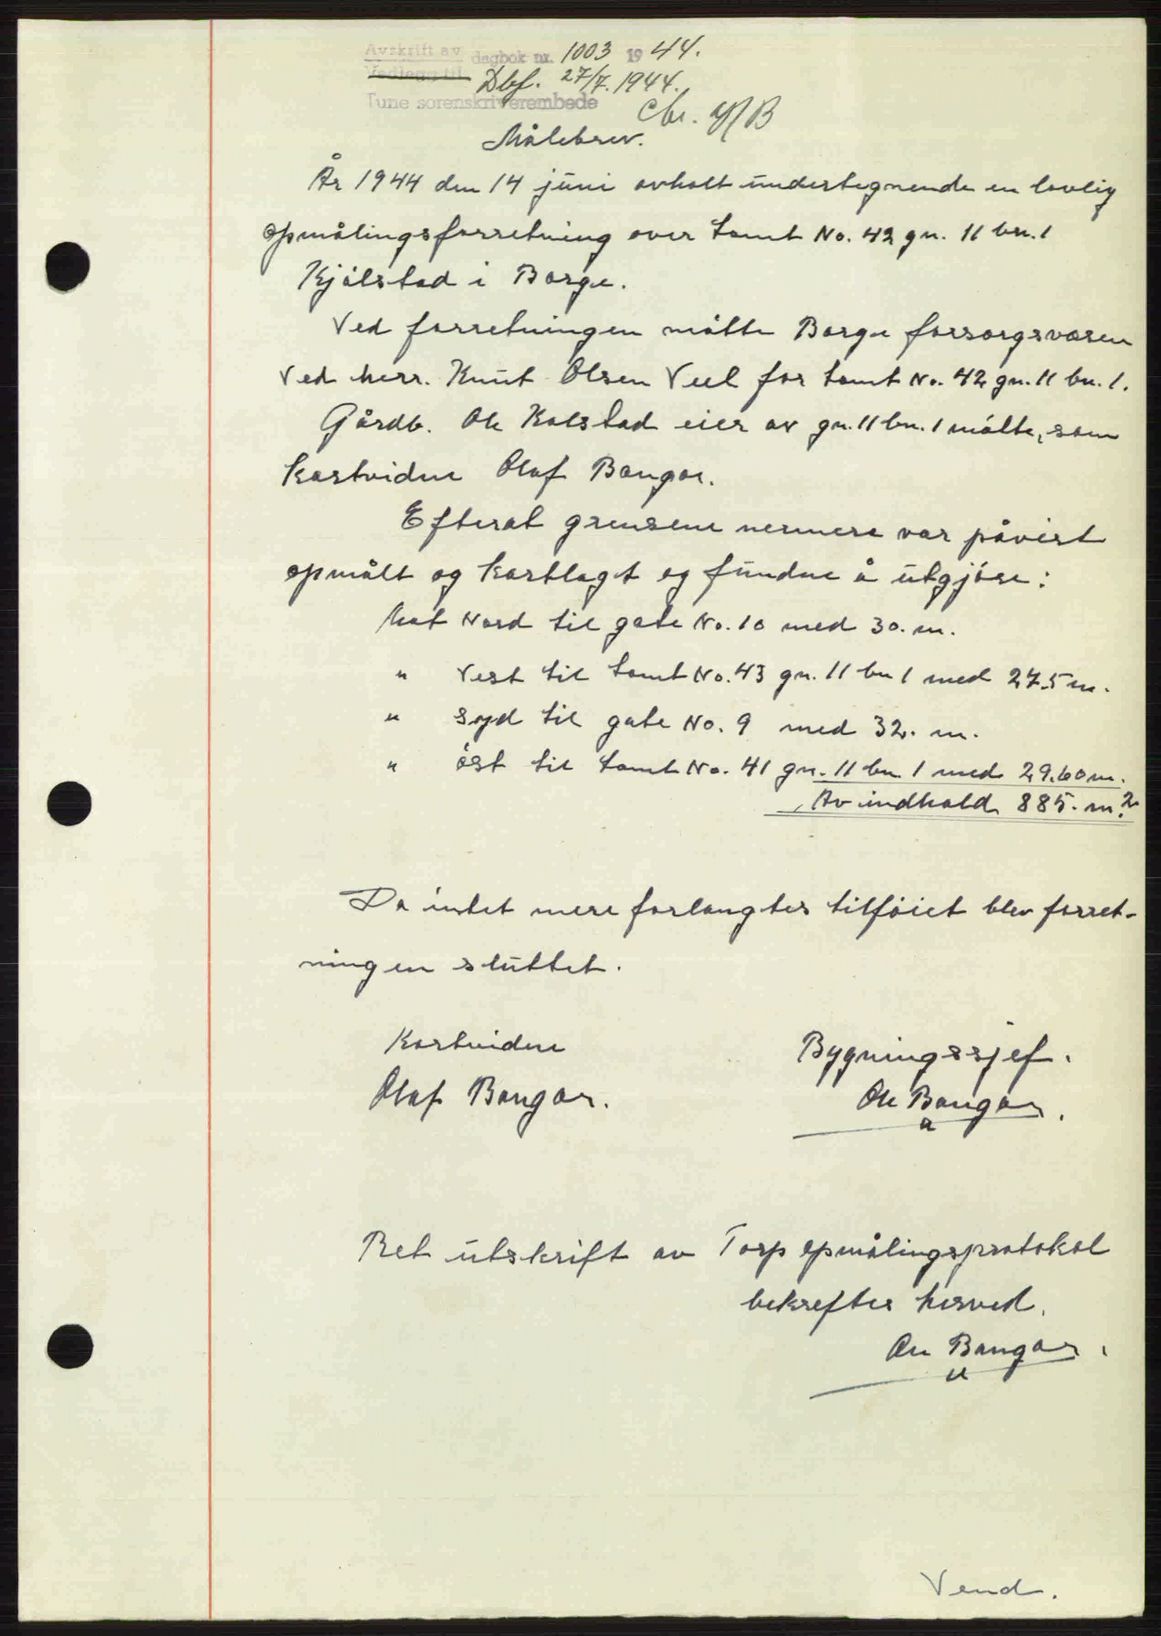 Avskrift av dagbok nr. 1003 1944.
Vedlegg til Dbf. 27/7. 1944.
Tune sorenskriverembede
Målebrev.
År 1944 den 14 juni avholt undertegnende en lovlig
opmålingsforretning over tomt No. 42 gn. 11 bn. 1
Kjølstad i Borge.
Ved forretningen møtte Borge forsorgsvæsen
ved herr. Knut Olsen Veel for tomt No. 42 gn. 11 bn. 1.
Gårdb. Ole Kolstad eier av gn. 11 bn. 1 møtte, som
kartvidne Olaf Bangor.
Efterat grensene nermere var påvist
opmålt og kartlagt og fundne å utgjøre:
Mot Nord til gate No. 10 med 30. m.
" Vest til tomt No. 43 gn. 11 bn 1 med 27.5 m.
" syd til gate No. 9 med 32. m.
" øst til tomt No. 41 gn. 11 bn 1 med 29.60 m.
Av indhold 885. m².
Da intet mere forlangtes tilføiet blev forret-
ningen sluttet.
Kartvidne Bygningssjef.
Olaf Bangor. Ole Bangor.
Ret utskrift av Torp opmålingsprotokol
bekreftes herved.
Ole Bangor.
Vend.